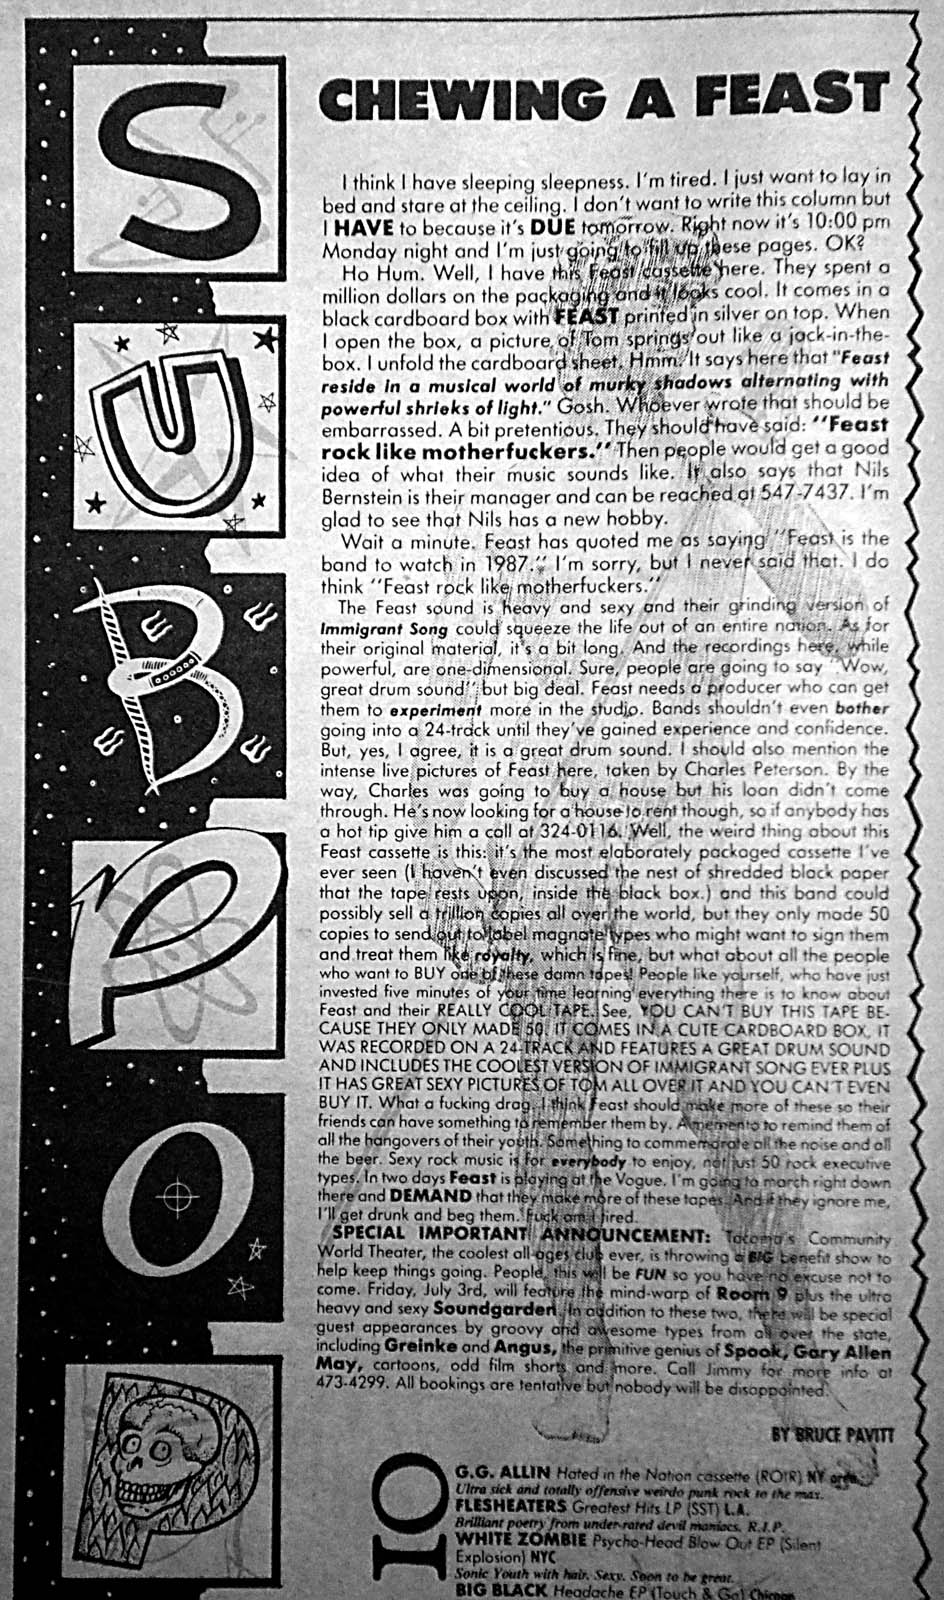 SUB POP
CHEWING A FEAST
I think I have sleeping sleepness. I'm tired. I just want to lay in
bed and stare at the ceiling. I don't want to write this column but
I HAVE to because it's DUE tomorrow. Right now it's 10:00 pm
Monday night and I'm just going to fill up these pages. OK?
Ho Hum. Well, I have this Feast cassette here. They spent a
million dollars on the packaging and it looks cool. It comes in a
black cardboard box with FEAST printed in silver on top. When
I open the box, a picture of Tom springs out like a jack-in-the-
box. I unfold the cardboard sheet. Hmm. It says here that "Feast
reside in a musical world of murky shadows alternating with
powerful shrieks of light." Gosh. Whoever wrote that should be
embarrassed. A bit pretentious. They should have said: "Feast
rock like motherfuckers." Then people would get a good
idea of what their music sounds like. It also says that Nils
Bernstein is their manager and can be reached at 547-7437. I'm
glad to see that Nils has a new hobby.
Wait a minute. Feast has quoted me as saying "Feast is the
band to watch in 1987." I'm sorry, but I never said that. I do
think "Feast rock like motherfuckers."
The Feast sound is heavy and sexy and their grinding version of
Immigrant Song could squeeze the life out of an entire nation. As for
their original material, it's a bit long. And the recordings here, while
powerful, are one-dimensional. Sure, people are going to say "Wow,
great drum sound" but big deal. Feast needs a producer who can get
them to experiment more in the studio. Bands shouldn't even bother
going into a 24-track until they've gained experience and confidence.
But, yes, I agree, it is a great drum sound. I should also mention the
intense live pictures of Feast here, taken by Charles Peterson. By the
way, Charles was going to buy a house but his loan didn't come
through. He's now looking for a house to rent though, so if anybody has
a hot tip give him a call at 324-0116. Well, the weird thing about this
Feast cassette is this: it's the most elaborately packaged cassette I've
ever seen (I haven't even discussed the nest of shredded black paper
that the tape rests upon, inside the black box.) and this band could
possibly sell a trillion copies all over the world, but they only made 50
copies to send out to label magnate types who might want to sign them
and treat them like royalty, which is fine, but what about all the people
who want to BUY one of these damn tapes! People like yourself, who have just
invested five minutes of your time learning everything there is to know about
Feast and their REALLY COOL TAPE. See, YOU CAN'T BUY THIS TAPE BE-
CAUSE THEY ONLY MADE 50. IT COMES IN A CUTE CARDBOARD BOX, IT
WAS RECORDED ON A 24-TRACK AND FEATURES A GREAT DRUM SOUND
AND INCLUDES THE COOLEST VERSION OF IMMIGRANT SONG EVER PLUS
IT HAS GREAT SEXY PICTURES OF TOM ALL OVER IT AND YOU CAN'T EVEN
BUY IT. What a fucking drag. I think Feast should make more of these so their
friends can have something to remember them by. A memento to remind them of
all the hangovers of their youth. Something to commemorate all the noise and all
the beer. Sexy rock music is for everybody to enjoy, not just 50 rock executive
types. In two days Feast is playing at the Vogue. I'm going to march right down
there and DEMAND that they make more of these tapes. And if they ignore me,
I'll get drunk and beg them. Fuck am I tired.
SPECIAL IMPORTANT ANNOUNCEMENT: Tacoma's Community
World Theater, the coolest all-ages club ever, is throwing a BIG benefit show to
help keep things going. People, this will be FUN so you have no excuse not to
come. Friday, July 3rd, will feature the mind-warp of Room 9 plus the ultra
heavy and sexy Soundgarden. In addition to these two, there will be special
guest appearances by groovy and awesome types from all over the state,
including Greinke and Angus, the primitive genius of Spook, Gary Allen
May, cartoons, odd film shorts and more. Call Jimmy for more info at
473-4299. All bookings are tentative but nobody will be disappointed.
BY BRUCE PAVITT
10
G.G. ALLIN Hated in the Nation cassette (ROIR) NY area
Ultra sick and totally offensive weirdo punk rock to the max.
FLESHEATERS Greatest Hits LP (SST) L.A.
Brilliant poetry from under-rated devil maniacs. R.I.P.
WHITE ZOMBIE Psycho-Head Blow Out EP (Silent
Explosion) NYC
Sonic Youth with hair. Sexy. Soon to be great.
BIG BLACK Headache EP (Touch & Go) Chicago